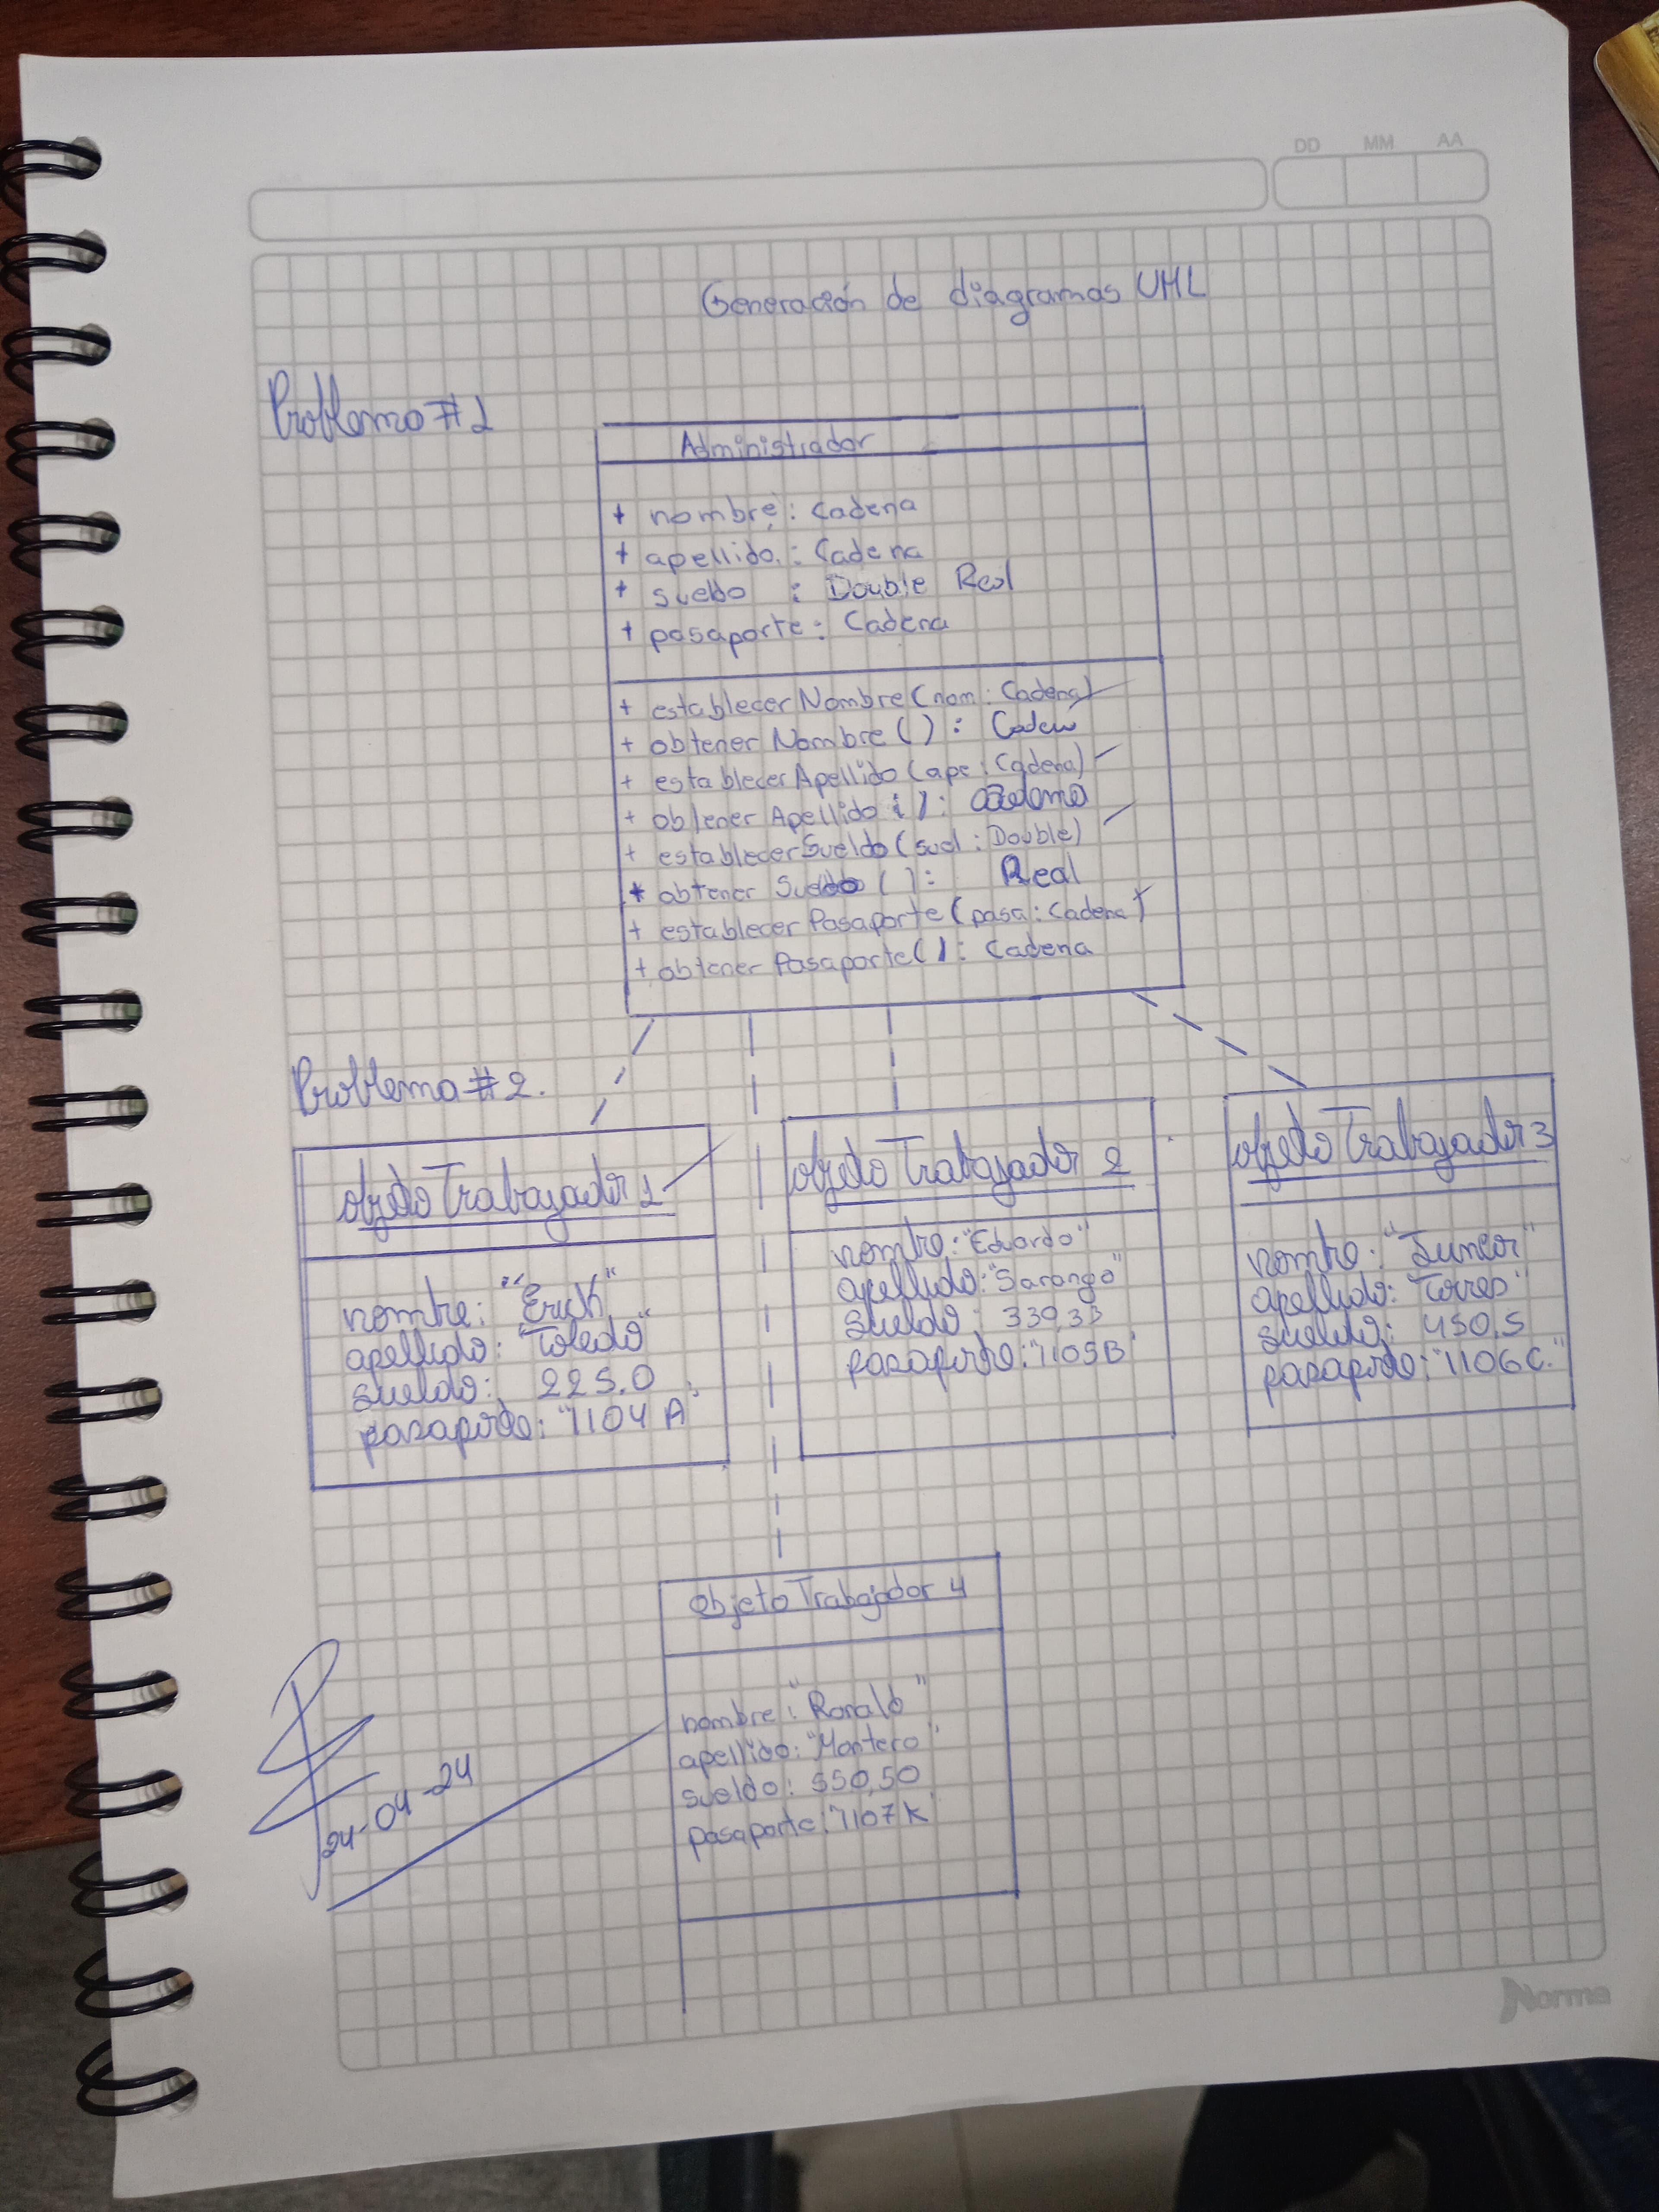 DD MM AA
Generación de diagramas UML
Problema #1
Administrador
+ nombre : Cadena
+ apellido : Cadena
+ sueldo : Double Real
+ pasaporte : Cadena
+ establecerNombre (nom : Cadena)
+ obtener Nombre ( ) : Caden
+ establecer Apellido (ape : Cadena)
+ obtener Apellido ( ) : Cadena
+ establecerSueldo (suel : Double)
+ obtener Sueldo ( ) : Real
+ establecer Pasaporte (pasa : Cadena)
+ obtener Pasaporte ( ) : Cadena
Problema #2.
objeto Trabajador 1
nombre: "Erick"
apellido: "Toledo"
sueldo: 225.0
pasaporte: "1104 A"
objeto Trabajador 2
nombre: "Eduardo"
apellido: "Sarango"
sueldo: 330,33
pasaporte: "1105B"
objeto Trabajador 3
nombre: "Junior"
apellido: "Torres"
sueldo: 450.5
pasaporte: "1106C."
Objeto Trabajador 4
nombre: "Ronald"
apellido: "Montero"
sueldo: 550,50
pasaporte: "1107K"
24-04-24
Norma